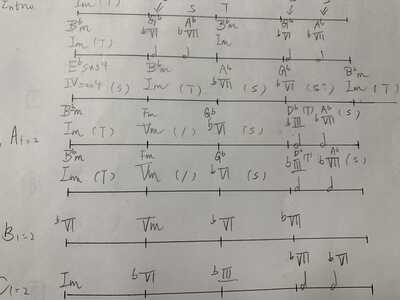 Intro Im (T) S T
B♭m G♭ A♭ B♭m
Im (T) ♭VI ♭VII Im
E♭sus4 B♭m A♭ G♭ B♭m
IVsus4 (S) Im (T) ♭VII (S) ♭VI (S) Im (T)
B♭m Fm G♭ D♭ (T) A♭
A1=2 Im (T) Vm (/) ♭VI (S) ♭III ♭VII (S)
B♭m Fm G♭ D♭ A♭
Im (T) Vm (/) ♭VI (S) ♭III (T) ♭VII (S)
B1=2 ♭VI Vm ♭VI ♭VII
♭VII ♭VI
C1=2 Im ♭VI ♭III